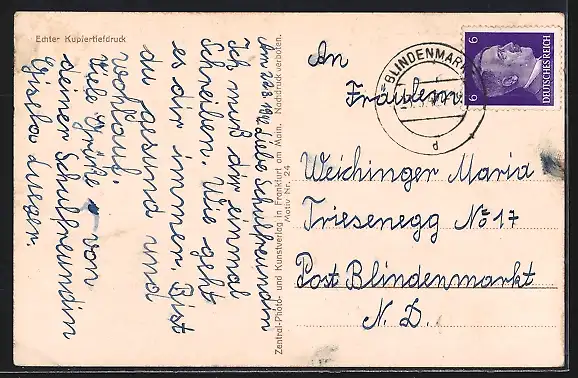 Echter Kupfertiefdruck
Am 28.3.42. Liebe Schulfreundin
Ich muß dir einmal
schreiben. Wie geht
es dir immer. Bist
du gesund und
wohlauf.
Viele Grüße von
deiner Schulfreundin
Gisela
Zentral-Photo- und Kunstverlag in Frankfurt am Main. Nachdruck verboten.
Motiv Nr. 24
An
Fräulein
Weichinger Maria
Triesenegg No 17
Post Blindenmarkt
N. D.
BLINDENMAR
d
6
6
DEUTSCHES REICH